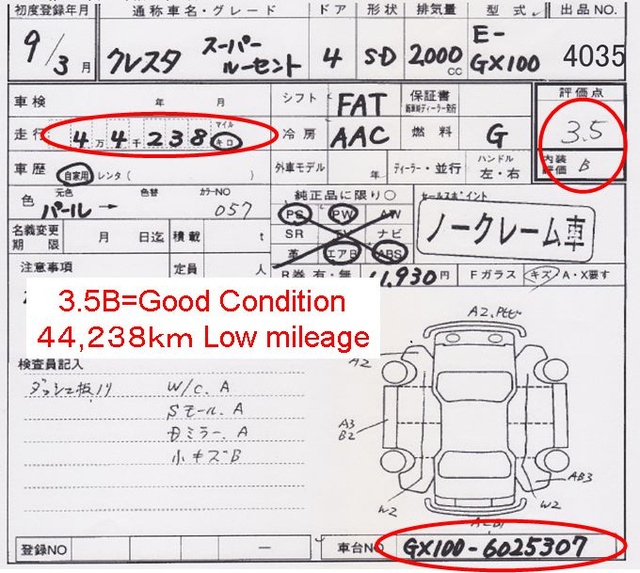 初度登録年月 通称車名・グレード ドア 形状 排気量 型式 出品NO.
9/3月 クレスタ スーパールーセント 4 SD 2000cc E-GX100 4035
車検 年 月 シフト FAT 保証書 評価点
走行 4万4千238 マイル キロ 冷房 AAC 燃料 G 3.5
車歴 自家用 レンタ( ) 外車モデル 年 ディーラー・並行 ハンドル 左・右 内装評価 B
色 元色 パール → 色替 カラーNO 057 純正品に限り○ セールスポイント
PS PW AW
名義変更期限 月 日迄 積載 t SR TV ナビ ノークレーム車
革 エアB ABS
注意事項 定員 人 R券 有・無 11,930円 Fガラス キズ A・X要す
3.5B=Good Condition
44,238km Low mileage
A2
検査員記入 A2
ダッシュ板ハリ W/C. A
Sモール. A A3
Dミラー. A B2
小キズB AB3
W2 W2
登録NO ー 車台NO GX100-6025307